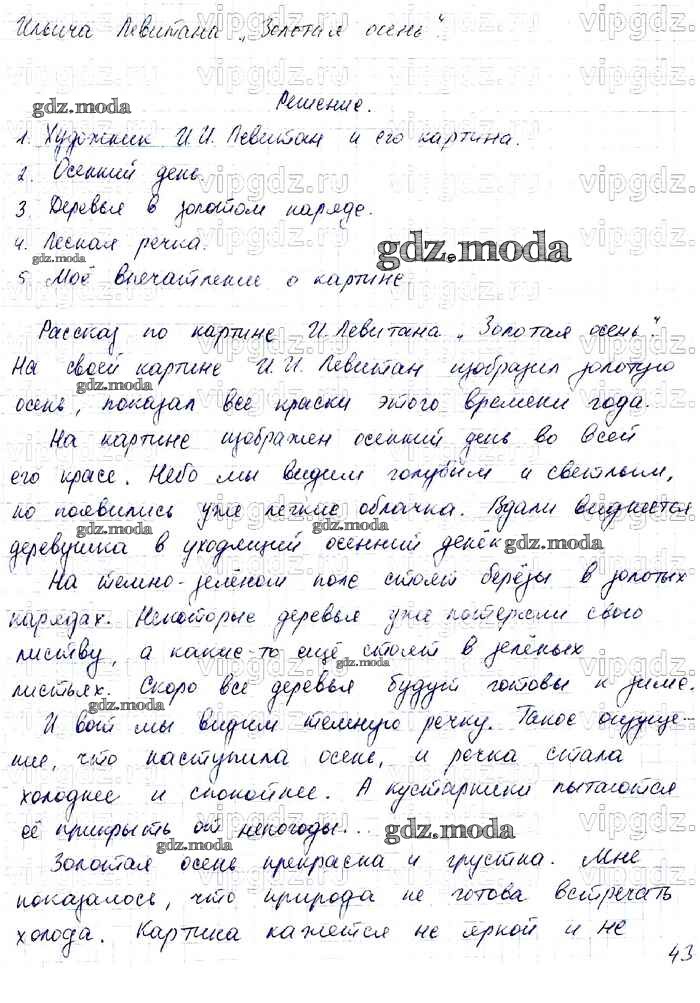 Ильича Левитана „Золотая осень“.
Решение.
1. Художник И.И. Левитан и его картина.
2. Осенний день.
3. Деревья в золотом наряде.
4. Лесная речка.
5. Моё впечатление о картине
Рассказ по картине И. Левитана „Золотая осень“.
На своей картине И.И. Левитан изобразил золотую
осень, показал все краски этого времени года.
На картине изображен осенний день во всей
его красе. Небо мы видим голубым и светлым,
но появились уже легкие облачка. Вдали виднеется
деревушка в уходящий осенний денёк
На темно-зелёном поле стоят берёзы в золотых
нарядах. Некоторые деревья уже потеряли свою
листву, а какие-то ещё стоят в зелёных
листьях. Скоро все деревья будут готовы к зиме.
И вот мы видим темную речку. Такое ощуще-
ние, что наступила осень, и речка стала
холоднее и спокойнее. А кустарники пытаются
её прикрыть от непогоды...
Золотая осень прекрасна и грустна. Мне
показалось, что природа не готова встречать
холода. Картина кажется не яркой и не
43
gdz.moda
vipgdz.ru